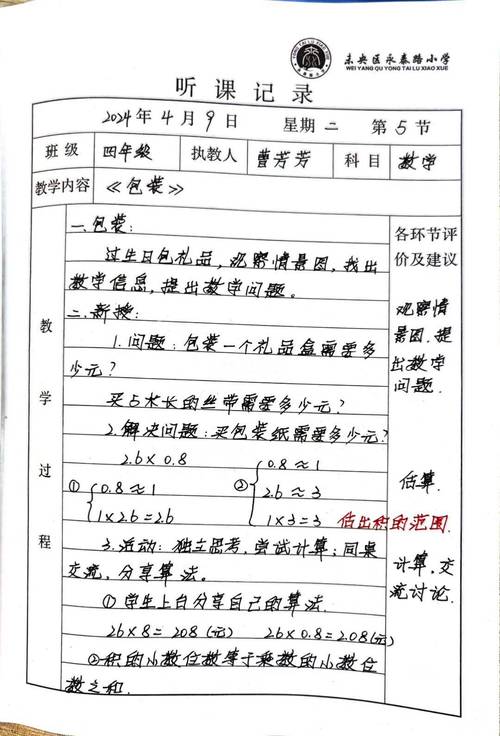 未央区永泰路小学
WEI YANG QU YONG TAI LU XIAO XUE
听课记录
2024年4月9日 星期二 第5节
班级 四年级 执教人 曹芳芳 科目 数学
教学内容 《包装》
教学过程
一、包装:
过生日包礼品,观察情景图,找出
数学信息,提出数学问题。
二、新授:
1.问题:包装一个礼品盒需要多
少元?
买占米长的丝带需要多少元?
2.解决问题:买包装纸需要多少元?
2.6×0.8
① 0.8≈1
1×2.6=2.6
② 0.8≈1
2.6≈3
1×3=3 估出积的范围.
3.活动:独立思考,尝试计算;同桌
交流,分享算法。
①学生上台分享自己的算法.
26×8=208(元) 26×0.8=2.08(元)
②积的小数位数等于乘数的小数位
数之和.
各环节评
价及建议
观察情
景图.提
出数学
问题.
估算.
计算,交
流讨论.